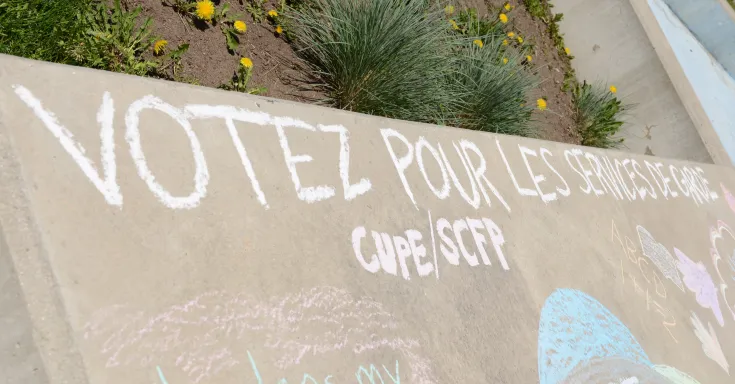 VOTEZ POUR LES SERVICES DE GARDE
CUPE/SCFP
my